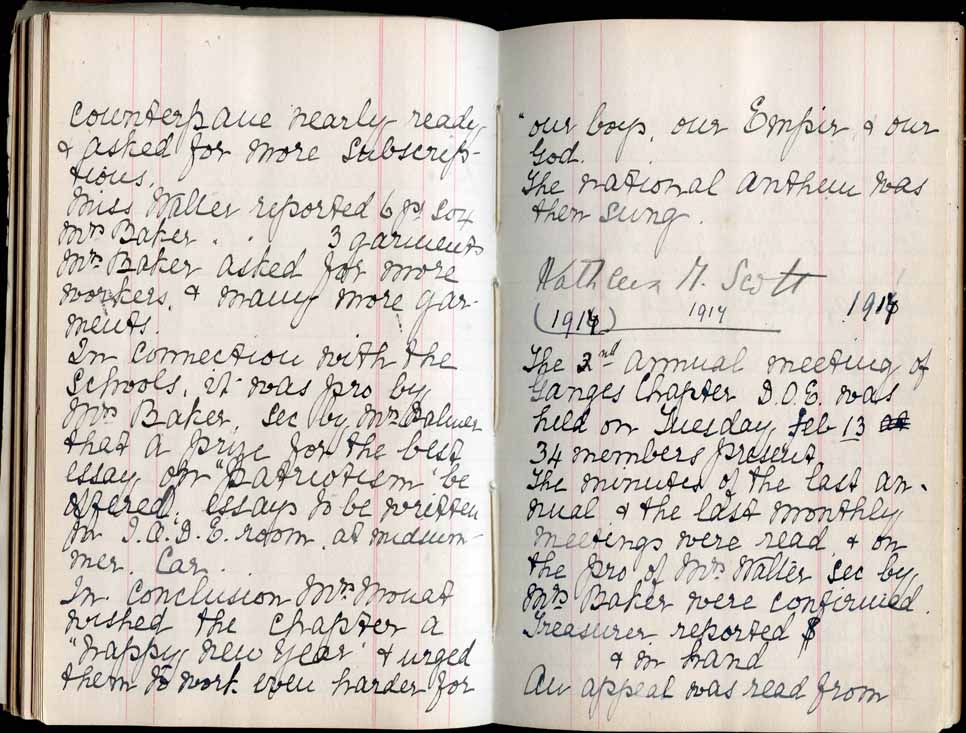 counterpane nearly ready,
& asked for more subscrip-
tions.
Miss Walter reported 6 prs sox
Mrs Baker . . 3 garments
Mrs Baker asked for more
workers, & many more gar-
ments.
In connection with the
schools, it was pro by
Mrs Baker, sec by Mrs Palmer
that a prize for the best
essay on "Patriotism" be
offered, essays to be written
in I.O.D.E. room at midsum-
mer. Car.
In conclusion Mrs Mouat
wished the chapter a
"happy new year" & urged
them to work even harder for
"our boys, our Empir & our
God.
The national anthem was
then sung.
Kathleen N. Scott
(1917) 1917 1917
The 2nd annual meeting of
Ganges Chapter D.O.E. was
held on Tuesday, Feb 13
34 members present
The minutes of the last an-
nual & the last monthly
meetings were read & on
the pro of Mrs Walter sec by,
Mrs Baker were confirmed.
Treasurer reported $
& in hand
An appeal was read from